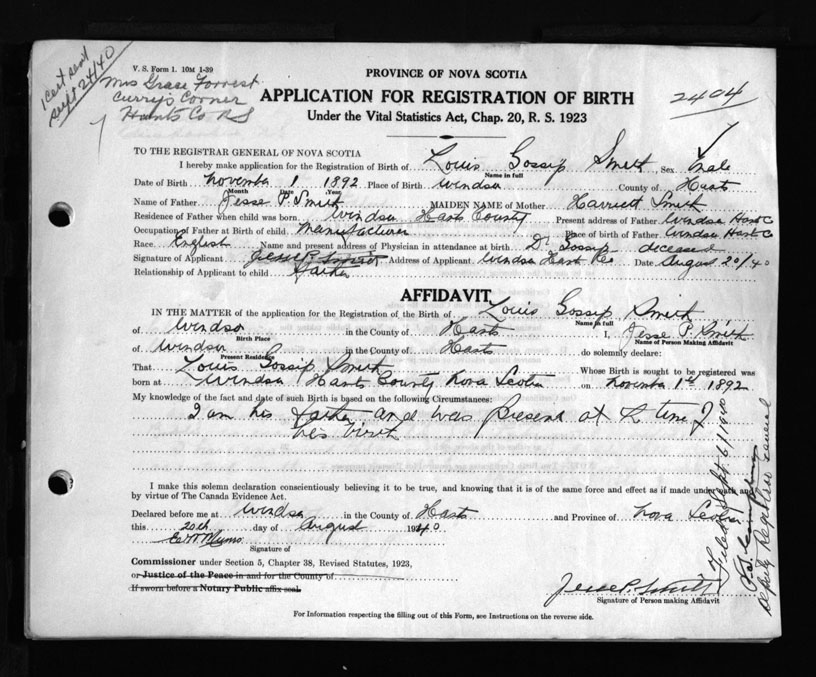 1 Cert sent
Sept 24/40
V. S. Form 1. 10M 1-39
Mrs Grace Forrest
Curry's Corner
Hants Co NS
PROVINCE OF NOVA SCOTIA
APPLICATION FOR REGISTRATION OF BIRTH
Under the Vital Statistics Act, Chap. 20, R. S. 1923
2404
TO THE REGISTRAR GENERAL OF NOVA SCOTIA
I hereby make application for the Registration of Birth of Louis Gossip Smith, Sex Male
Name in full
Date of Birth November 1 1892 Place of Birth Windsor County of Hants
Month Date Year
Name of Father Jesse P. Smith MAIDEN NAME of Mother Harriett Smith
Residence of Father when child was born Windsor Hants County Present address of Father Windsor Hants Co
Occupation of Father at Birth of child Manufacturer Place of birth of Father Windsor Hants Co
Race English Name and present address of Physician in attendance at birth Dr Gossip deceased
Signature of Applicant Jesse P. Smith Address of Applicant Windsor Hants Date August 20/40
Relationship of Applicant to child father
AFFIDAVIT
IN THE MATTER of the application for the Registration of the Birth of Louis Gossip Smith
Name in full
of Windsor in the County of Hants I, Jesse P. Smith
Birth Place Name of Person Making Affidavit
of Windsor in the County of Hants do solemnly declare:
Present Residence
That Louis Gossip Smith Whose Birth is sought to be registered was
born at Windsor Hants County Nova Scotia on November 1st 1892
My knowledge of the fact and date of such Birth is based on the following Circumstances:
I am his father and was present at the time of
his birth
I make this solemn declaration conscientiously believing it to be true, and knowing that it is of the same force and effect as if made under oath and
by virtue of The Canada Evidence Act.
Declared before me at Windsor in the County of Hants and Province of Nova Scotia
this 20th day of August 1940
Signature of
Commissioner under Section 5, Chapter 38, Revised Statutes, 1923,
or Justice of the Peace in and for the County of
If sworn before a Notary Public affix seal.
Jesse P. Smith
Signature of Person making Affidavit
For Information respecting the filling out of this Form, see Instructions on the reverse side.
Filed Sept. 6/1940
Deputy Registrar General